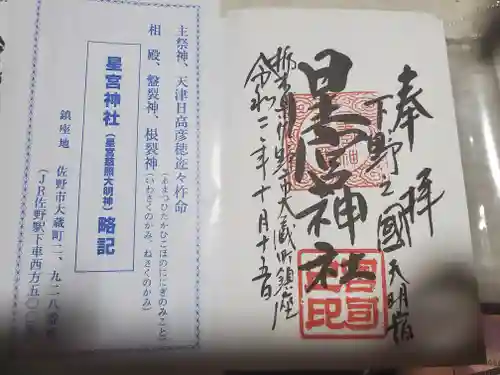 奉拝
下野之國天明宿
星宮神社
栃木県佐野市大蔵町鎮座
令和二年十月十五日
主祭神、天津日高彦穂迩々杵命
(あまつひたかひこほのににぎのみこと)
相殿、磐裂神、根裂神
(いわさくのかみ、ねさくのかみ)
星宮神社(星宮慈照大明神)略記
鎮座地 佐野市大蔵町二、九二八番地
(JR佐野駅下車西方五〇